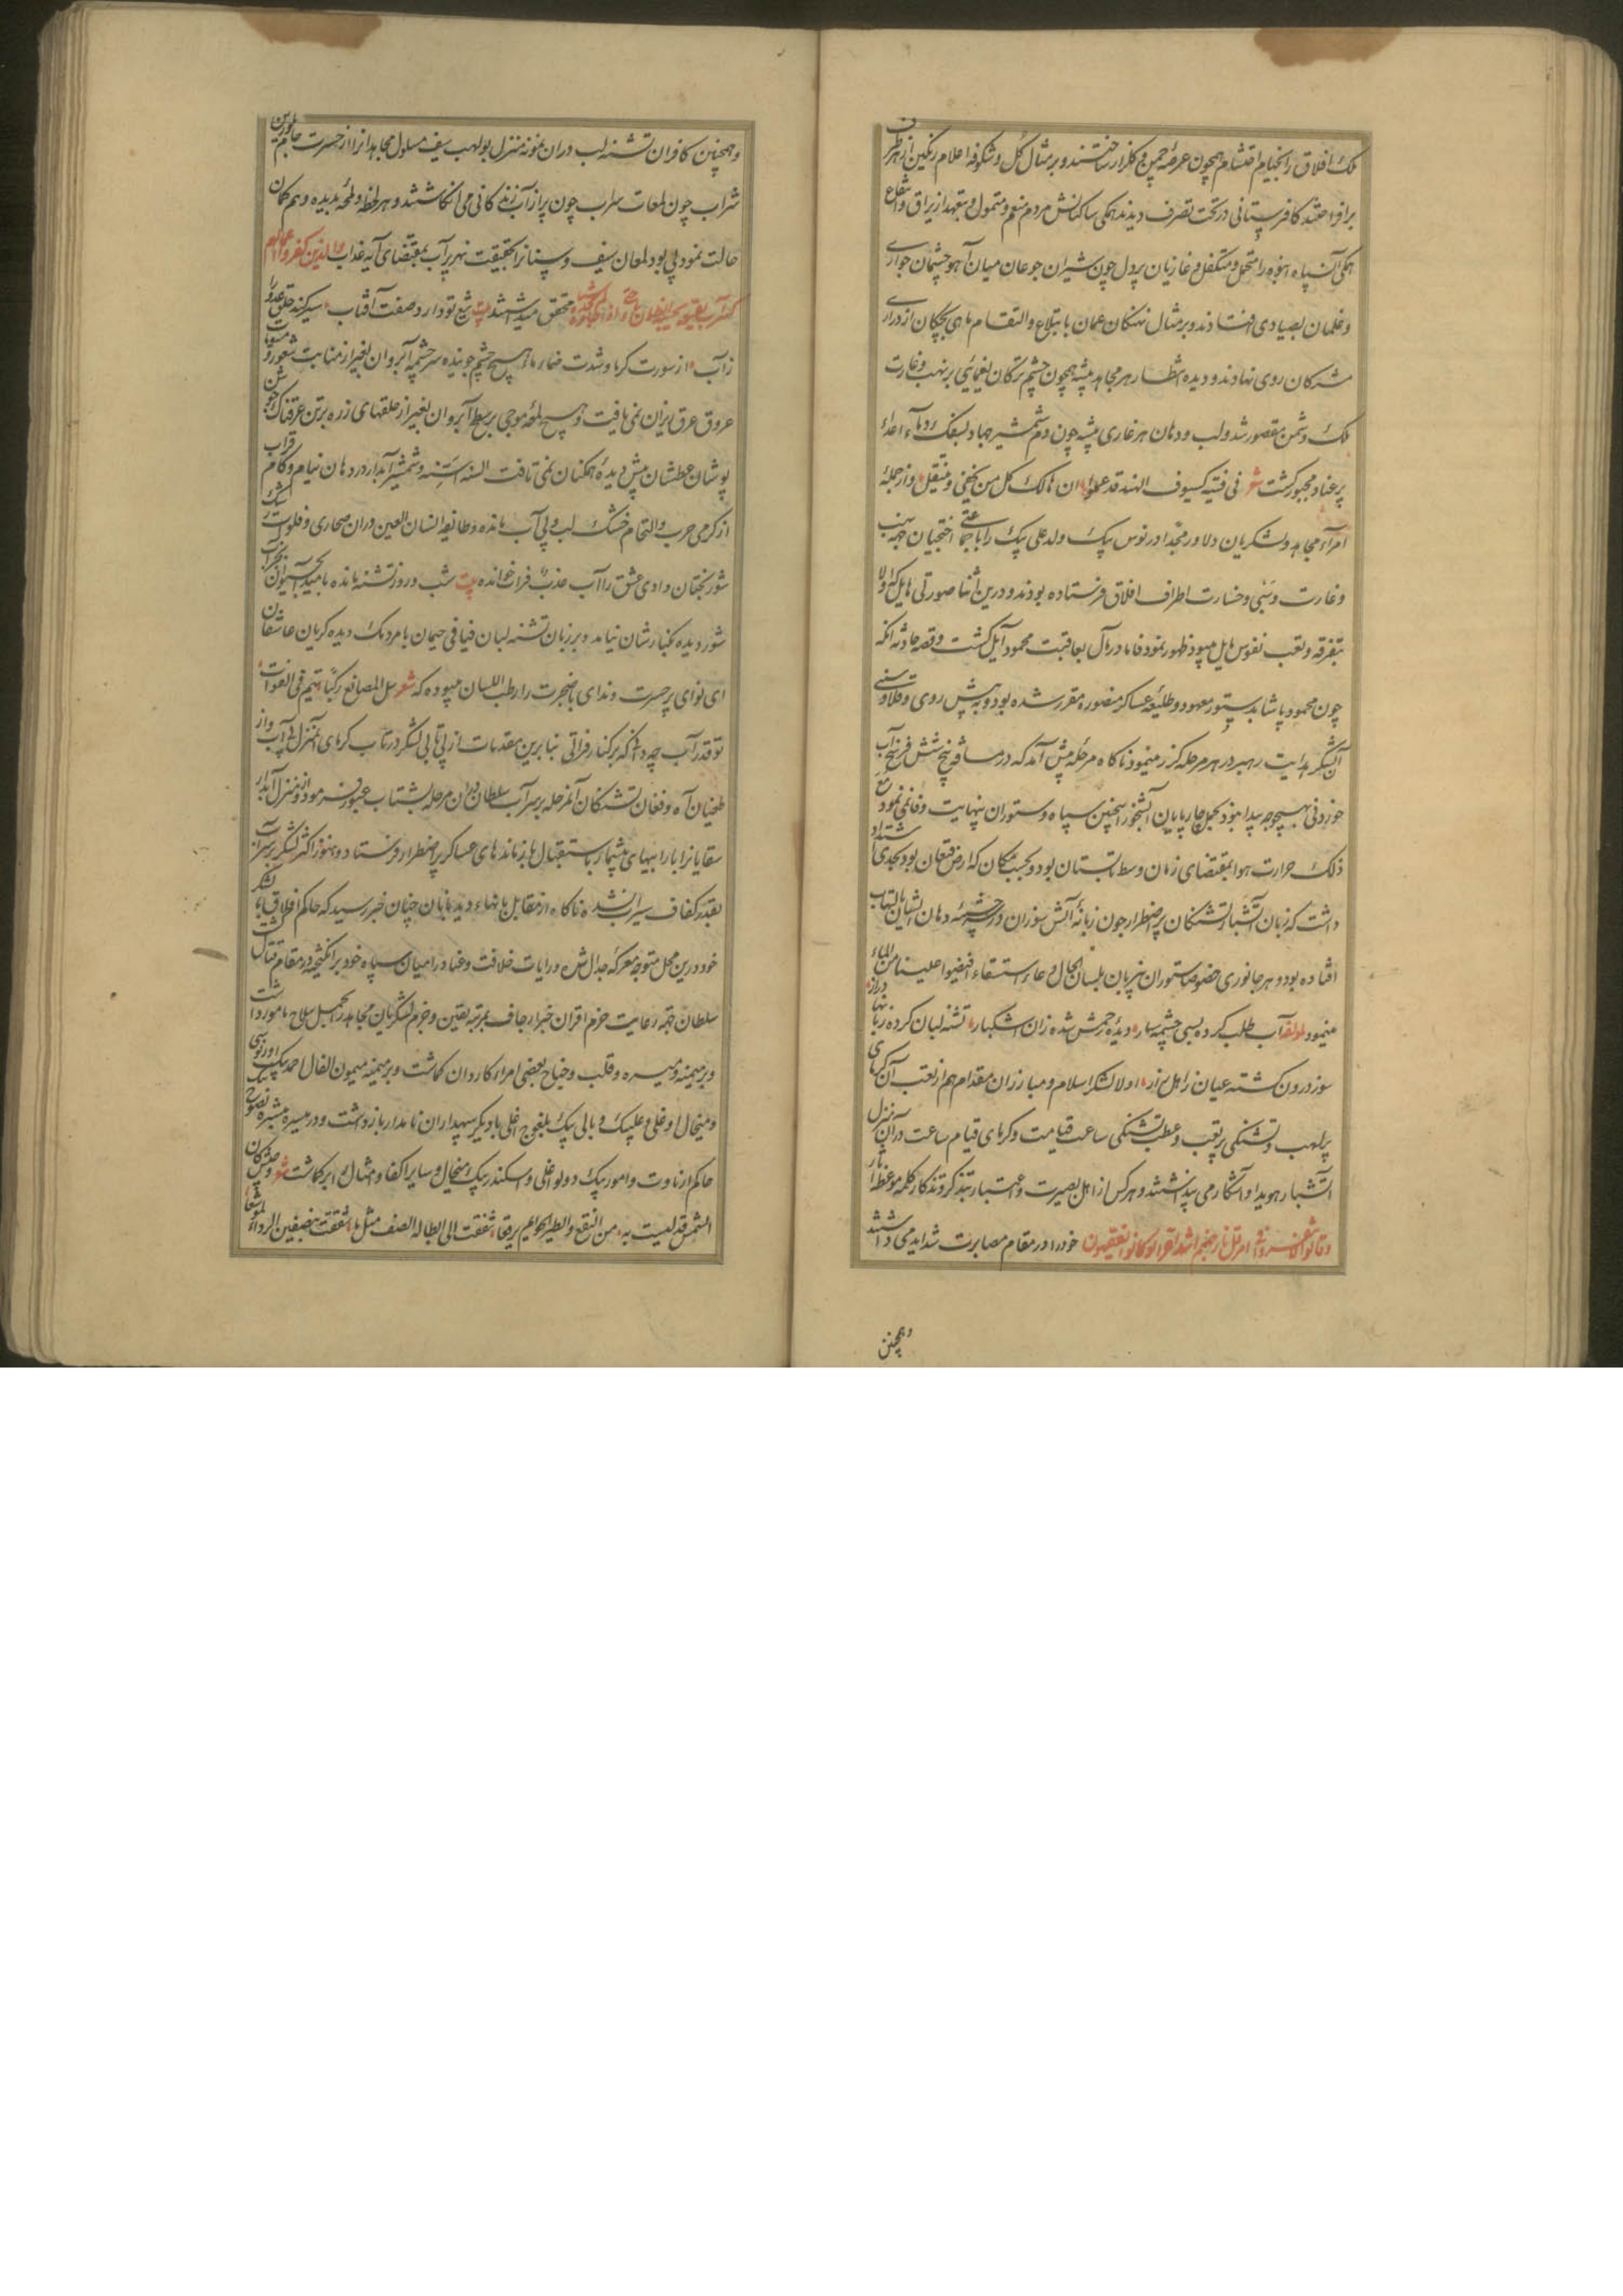 ملک افلاق را بخیام احتشام همچون عرصهٔ چمن گلزار ساختند و بر مثال گل و شکوفه اعلام رنگین از هر طرف
برافراختند کافرستانی در تحت تصرف دیدند همکی ساکنانش مردم منعم و متمول و
همکی آن سپاه انبوه را متحمل و متکفل و غازیان پر دل چون شیران جوعان میان آهو چشمان جواری
و غلمان بصیادی افتادند و بر مثال نهنکان عمان بابتلاع و التقام ماهی بچکان از دراری
مشرکان روی نهادند و دیده انتظار هر مجاهد پیشه همچون چشم ترکان یغمایی بر نهب و غارت
ملک دشمن مقصور شد و لب و دهان هر غازی پیشه چون دم شمشیر جهاد بسفک دماء اعداء
پر عناد مجبور کشت شعر فی فتیة کسیوف الهند قد علموا ان هالک کل من یحفی و ینتعل و از جمله
امراء مجاهد و لشکریان دلاور محمد اورنوس بیک ولد علی بیک را با جماعتی اقنجیان جهة نهب
و غارت و سبی و خسارت اطراف افلاق فرستاده بودند و درین اثنا صورتی هایل که اولا
بتفرقه و تعب نفوس مایل میبود ظهور نمود فاما در مآل بعاقبت محمود آیل کشت و قصه حادثه انکه
چون محمود پاشا بدستور معهود و طلیعه عساکر منصوره مقرر شده بود و به پیش روی و قلاوزی
آن لشکر هدایت رهبر در هر مرحله کذر مینمود ناکاه مرحلهٔ پیش آمد که در مسافت پنج شش فرسخ آب
خوردنی بهیچوجه پیدا نبود و بحمل چارپایان آبشخور اینچنین سپاه و ستوران بینهایت وفا نمی نمود مع
ذلک حرارت هوا بمقتضای زمان وسط تابستان بود و بحسب مکان که ارض قیعان بود بحدی اشتداد
داشت که زبان آتشبار تشنکان پر اضطرار چون زبانهٔ آتش سوزان در چشمهٔ دهان ایشان بالتهاب
افتاده بود و هر جانوری خصوصا ستوران بی زبان بلسان الحال دعاء استسقاء افیضوا علینا من الماء
مینمود لمولفه آب طلب کرده بسی چشمه سار دیدهٔ چرمش شده زان اشکبار تشنه لبان کرده زبانها دراز
سوز درون کشته عیان ز اهل راز اولا لشکر اسلام و مبارزان مقدام هم از تعب آن کرمای
پر لهب و تشنکی پر تعب و عطب تشنکی ساعت قیامت و کرمای قیام ساعت در آن منزل
آتشبار هویدا و آشکار می پنداشتند و هر کس از اهل بصیرت و اعتبار بتذکر و تذکار کلمه موعظه آثار
و قالوا لا تنفروا فی الحر قل نار جهنم اشد حرا لو کانوا یفقهون خود را در مقام مصابرت شداید می داشتند
وهمچنین
وهمچنین کافران تشنه لب در آن نمونه منزل بولهب سیف مسلول مجاهدانرا از حسرت جام
شراب چون لمعات سراب چون پر از آب زندکانی می انکاشتند و هر لحظه و لمحه بدیده وهم و کمان
حالت نمود بی بود لمعان سیف و سنانرا بحقیقت نهر پر آب بمقتضای آیه عذاب والذین کفروا اعمالهم
کسراب بقیعة یحسبه الظمآن ماء حتی اذا جاءه محقق میداشتند بیت تیغ تو دارد صفت آفتاب سیر کند خلق عدو را
ز آب از سورت کرما و شدت ضماء هیچ چشم جوینده سرچشمه آبروان بغیر از منابت شعور و
عروق عرق ریزان نمی یافت و هیچ لمحه موجی بر سطح آبروان بغیر از حلقهای زره بر تن عرقناک جوشن
پوشان عطشان پیش دیدهٔ همکنان نمی تافت السنه اسنه و شمشیر آبدار در دهان نیام و کام قراب
از کرمی حرب و التحام خشک لب و بی آب مانده و طایفه انسان العین در آن صحاری و فلوات
شوربختان وادی عشق را آب عذب فرات خوانده بیت شب و روز تشنه مانده بامید آب حیوان
شور دیده کنار شان نیامد و بر زبان تشنه لبان فیافی حرمان بامردمک دیده کریان عاشقان
ای نوای پر حسرت و ندای با ضجرت را رطب اللسان میبود که شعر سل المصانع رکبا تهیم فی الفلوات
تو قدر آب چه دانی که بر کنار فراتی بنابرین مقدمات از بی تابی لشکر در تاب کرمای آن منزل بی آب و از
طغیان آه و فغان تشنکان آن مرحله بر سر آب سلطان دوران مرحله بشتاب عبور فرمود و از منزل آبدار
سقایانرا با راویهای بیشمار باستقبال بازماندهای عساکر پر اضطرار فرستاد و هنوز اکثر لشکر بر سر آب
بقدر کفاف سیراب نشده ناکاه از مقابل بانهاء دیده بانان چنان خبر رسید که حاکم افلاق با لشکر
خود درین محل متوجه معرکهٔ جدال شده و رایات خلافت و عناد را میان سپاه خود برانکیخته در مقام قتال است
سلطان جهة رعایت حزم اقران خبر ارجاف بمرتبه یقین و جزم لشکریان مجاهد را بحمل سلاح مامور داشت
و بر میمنه و میسره و قلب و جناح بعضی امراء کاردان کماشت و بر میمنه میمون الفال احمد بیک اورنوسی
و میخال اوغلی علی بیک و بالی بیک بلغوج اغلی با دیکر سپهداران نامدار بازداشت و در میسره نصوح بیک
حاکم ارناوت و امور بیک و دولو اغلی و اسکندر بیک میخال و سایر اکفا و امثال را برکماشت شعر
الشمس قد لعبت به من النقع والطیر